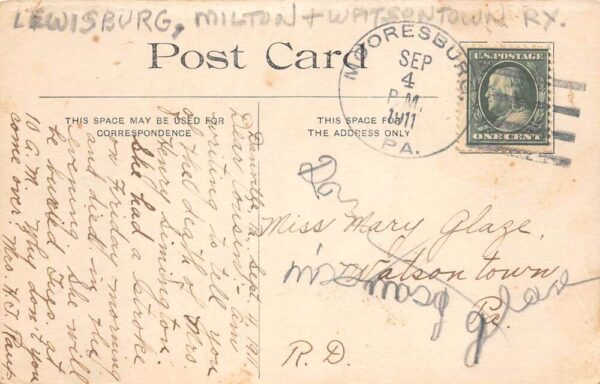 LEWISBURG, MILTON + WATSONTOWN RY.
Post Card
MOORESBURG,
SEP
4
P.M.
1911
PA.
U.S. POSTAGE
ONE CENT
THIS SPACE MAY BE USED FOR
CORRESPONDENCE
THIS SPACE FOR
THE ADDRESS ONLY
Danville, Pa., Sept. 4, 1911
Dear Cousin:- Am
writing to tell you
of the death of Mrs.
Henry Simington.
She had a stroke
on Friday morning
and died in the
evening. She will
be buried Tues. at
10 A.M. Why don't you
come over. Mrs. H.F.
Miss Mary Glaze,
Watsontown
Pa.
R. D.
miss mary glaze